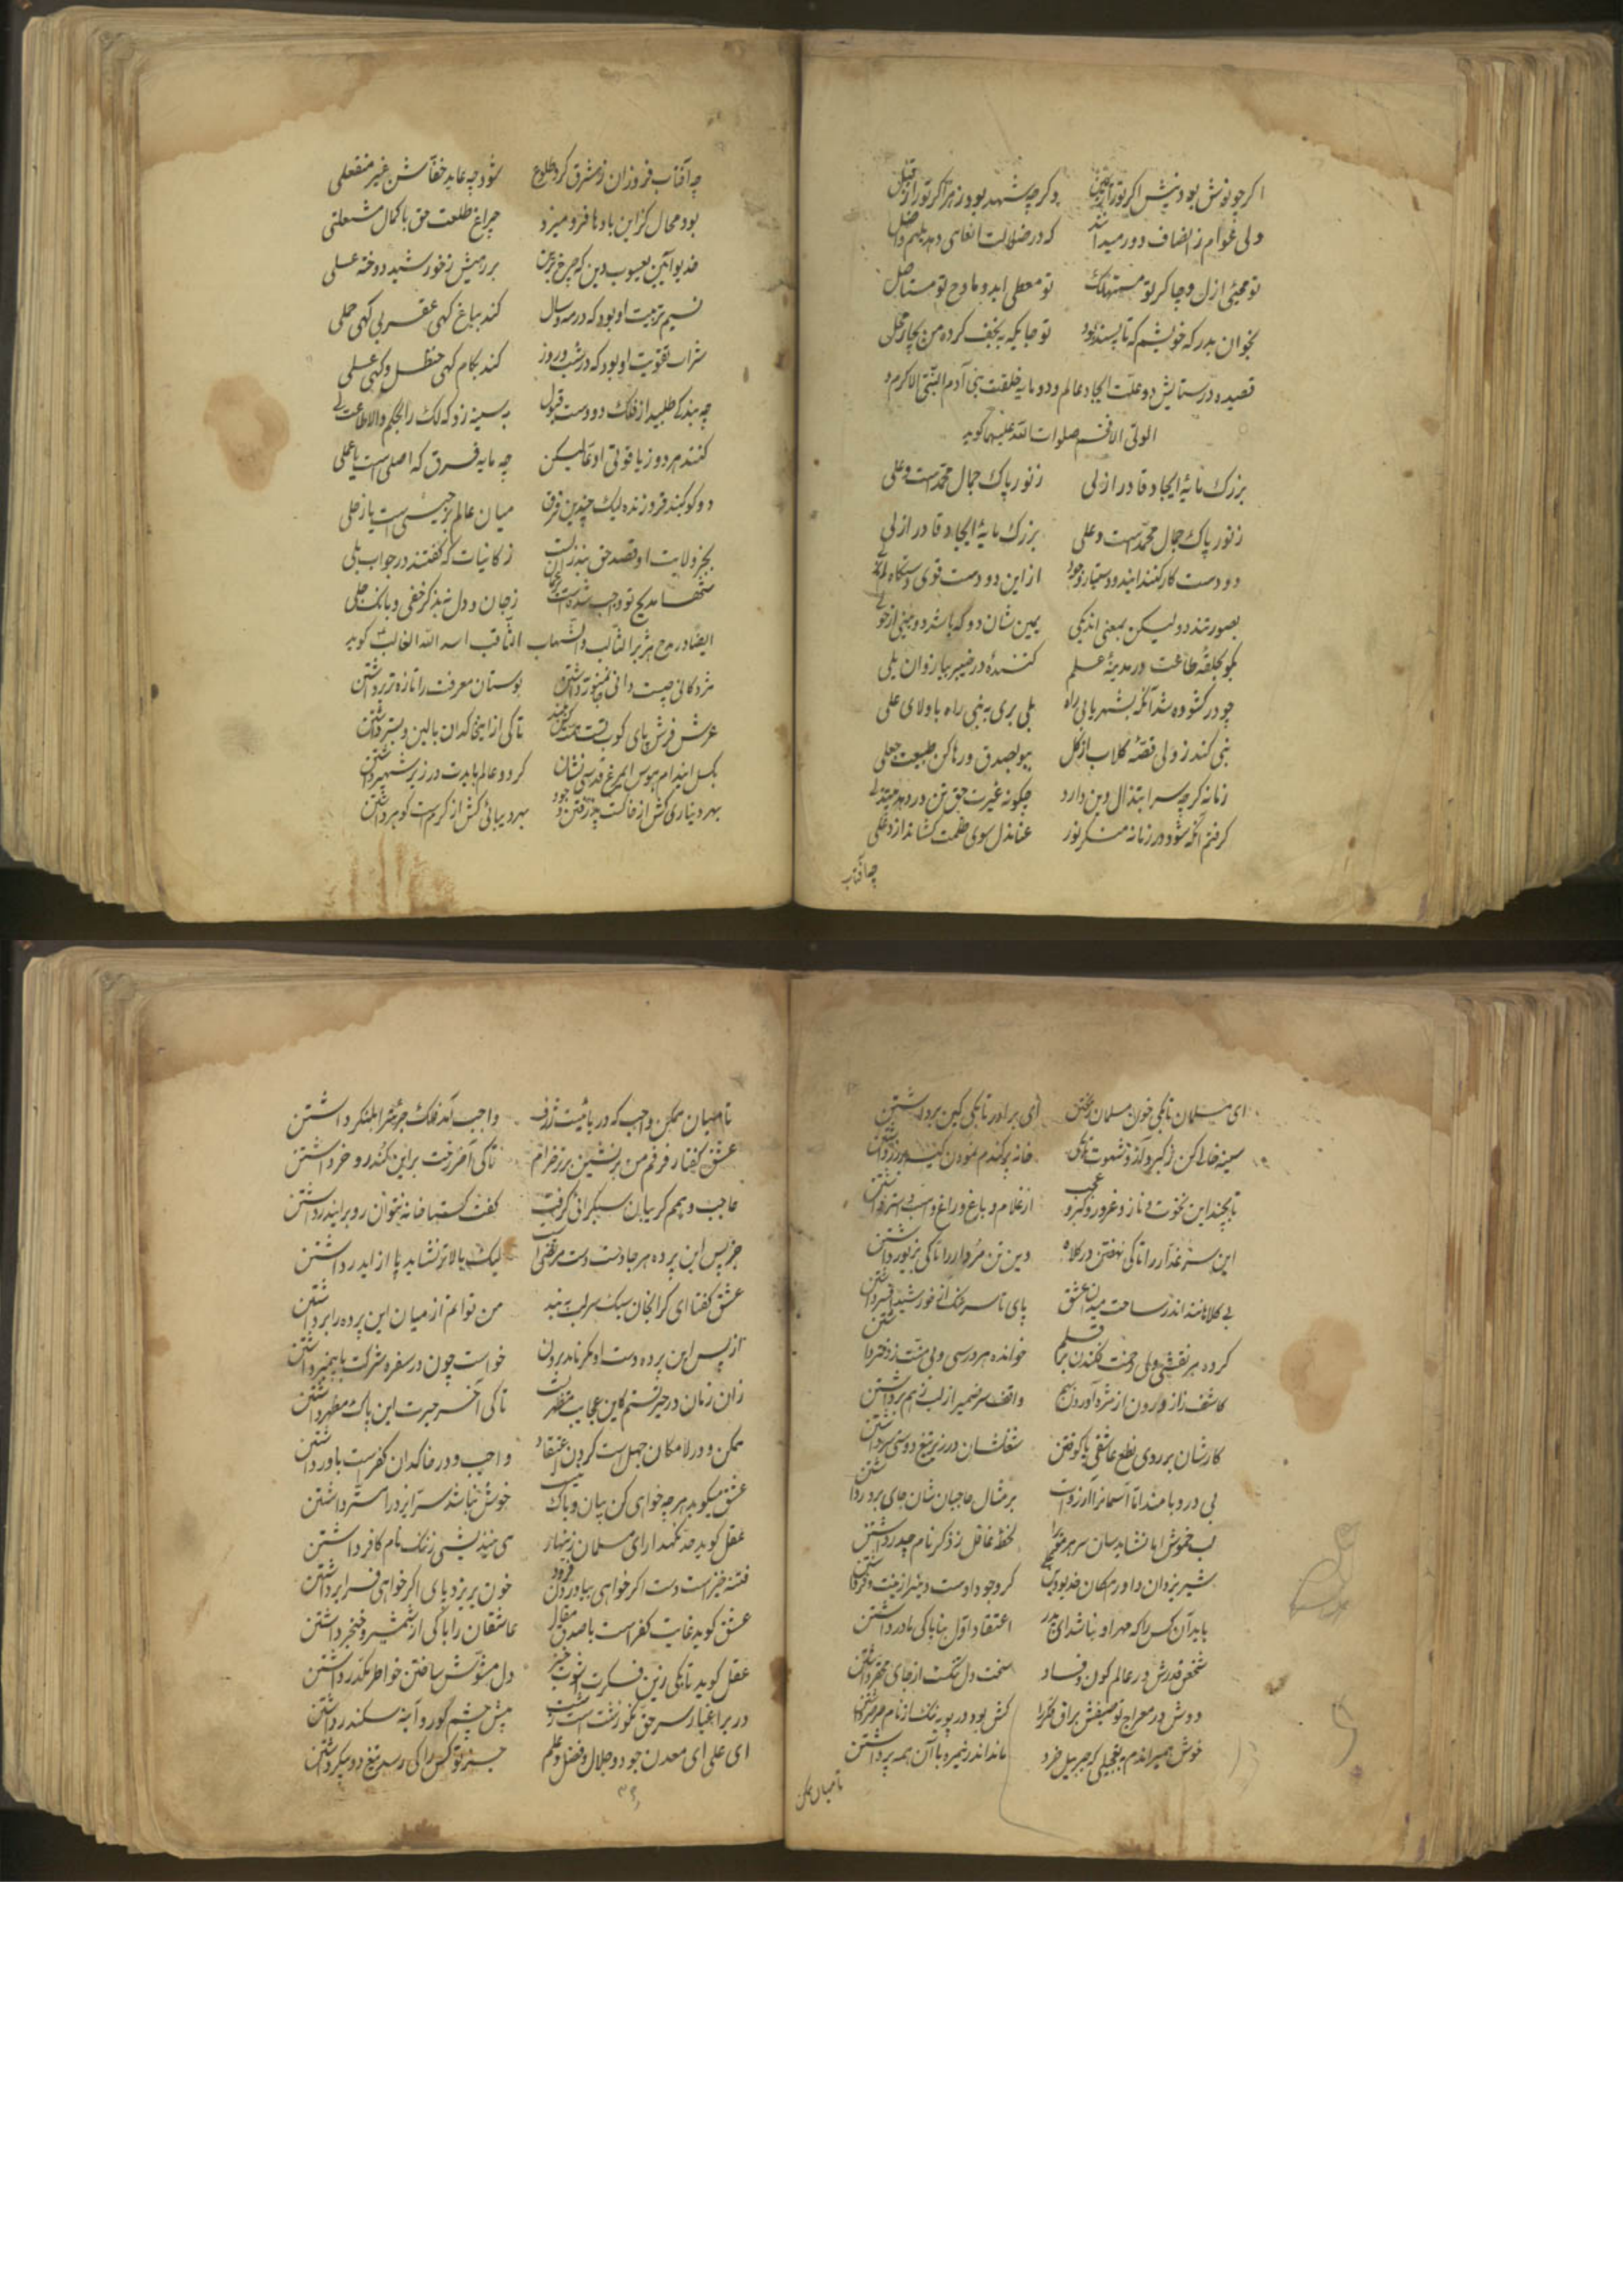 اگر چو نوش بود نیش اگر تو را
وگر چه شهد بود زهر اگر تو را
ولی عوام ز انصاف دور
که در ضلالت
تو محیی ازل و چاکر تو مستهلک
تو معطی ابد و مادح تو مستاصل
بخوان بدرگه خویشم که تا
تو جایکه به نجف کرده من بچار محل
قصیده در ستایش دو علت ایجاد عالم و دو مایه خلقت بنی آدم النبی الاکرم و
الولی الافخم صلوات الله علیهما گوید
بزرگ مایهٔ ایجاد قادر ازلی
ز نور پاک جمال محمد است و علی
ز نور پاک جمال محمد است و علی
بزرگ مایهٔ ایجاد قادر ازلی
دو دست کارکنند ایند و دستیار وجود
از این دو دست قوی دستگاه
بصورتند دو لیکن بمعنی اند یکی
یمین شان دو که باشد دو بینی از حولی
بکو بحلقهٔ طاعت در مدینهٔ علم
کننده در خیبر بیار زوان بلی
چو در گشوده شد آنکه بشهر یابی راه
بلی بری به نبی راه با ولای علی
نبی کند ز ولی قصهٔ گلاب از گل
ببو بصدق و رها کن طبیعت جعلی
زمانه گرچه سر ابتذال دین دارد
چگونه غیرت حق تن دردهد
گرفتم آنکه شود در زمانه منکر نور
عنان دل سوی ظلمت کشاند از دغلی
چه آفتاب
چه آفتاب فروزان ز مشرق کرد طلوع
شود چه عاید خفاش غیر منفعلی
بود محال کز این بادها فرو میرد
چراغ طلعت حق با کمال مشتعلی
خدیو آیین یعسوب دین که چرخ برین
بر رمیش ز خورشید دوخته عسلی
نسیم تربیت او بود که در مه و سال
کند بباغ گهی عقربی گهی حملی
شراب تقویت او بود که در شب و روز
کند بکام گهی حنظل و گهی عسلی
چه بندگی طلبید از فلک دو دست قبول
به سینه زد که لک الحکم والاطاعت لی
کنند هر دو ز یاقوتی ادعا لیکن
چه مایه فرق که اصلی است یا عملی
دو کوکبند فروزنده لیک چندین فرق
میان عالم برجیسی است یا زحلی
بجز ولایت او قصد حق نبد ز الست
ز کائنات که گفتند در جواب بلی
شها مدیح تو واجب شده است
ز جان و دل نه بذکر خفی و بانگ جلی
ایضا در مدح هژبر السالب والشهاب الثاقب اسد الله الغالب گوید
مژدگانی چیست دانی
بوستان معرفت را تازه تر برداشتن
عرش فرش پای کوب تست همت کن بلند
تا کی از این خاکدان بالین و بستر داشتن
بگسل این دام هوس ای مرغ قدسی آشیان
گر دو عالم بایدت در زیر شهپر داشتن
بهر دیناری کش از خاکست پذرفتن وجود
بهر دیبائی کش از کرم است گوهر داشتن
ای مسلمان تا بکی خون مسلمان ریختن
ای برادر تا بکی کین برادر داشتن
سینه خالی کن ز کبر و آز و شهوت
خانه پر گندم نمودن کیسه پر زر داشتن
تا بچند این نخوت و ناز و غرور و کبر و عجب
از غلام و باغ و راغ و اسب و استر داشتن
این سر غدار را تا کی نهفتن در کلاه
وین تن مردار را تا کی بزیور داشتن
بی کلاهانند اندر ساحت میدان عشق
پای تا سر
خورشید افسر داشتن
کرده هر نقشی ولی زحمت فکندن بر قلم
خوانده هر درسی ولی منت ز دفتر داشتن
کاشف راز درون از مژه آوردن بهم
واقف سر ضمیر از لب ز هم برداشتن
کارشان بر روی نطع عاشقی پا کوفتن
شغلشان در زیر تیغ دوستی سر داشتن
بی درو بامند اما آسمانرا آرزوست
بر مثال حاجبان شان جای بر در داشتن
لب خموش اما نشاید سان
لحظهٔ غافل ز ذکر نام حیدر داشتن
شیر یزدان داور امکان خدیو دین
کز وجود اوست دنیا زینت و فر داشتن
باید آن کس را که مهر او نباشد ای پدر
اعتقاد اول بناپاکی مادر داشتن
شخص قدرش در عالم کون و فساد
سخت دل تنگست از جای محقر داشتن
دوش در معراج توصیفش براق فکر را
کش بود در پویه ننگ از نام صرصر داشتن
خوش همی راندم بتعجیلی که جبریل خرد
ماند اندر نیمره با آن همه پر داشتن
تا میان ممکن
تا میان ممکن و واجب که دریائیست ژرف
واجب آمد فلک جرئت را بلنگر داشتن
عشق گفتا رفرفم من برنشین برتر خرام
تا کی آخر رخت بر این کندرو خر داشتن
حاجب وهمم گریبان سبکرانی گرفت
گفت گستاخانه نتوان رو بر این در داشتن
جز پس این پرده هر جا دست دست مرتضی است
لیک بالاتر نشاید پا از ایدر داشتن
عشق گفتا ای گرانجان سبک سر لب به بند
من توانم از میان این پرده را برداشتن
از پس این پرده دست او مگر نامد برون
خواست چون در سفره شرکت با پیمبر داشتن
زان زمان در حیرتستم کاین عجایب مظهر است
تا کی آخر حیرت این پاک مظهر داشتن
ممکن و در لامکان جهل است کردن اعتقاد
واجب و در خاکدان کفر است باور داشتن
عشق میگوید هر چه خواهی کن بیان و باک نیست
خوش نباشد سر ایزد را مستر داشتن
عقل گوید حد نگهدار ای مسلمان زینهار
می نیندیشی ز ننگ نام کافر داشتن
فتنه خیز است دست اگر خواهی بیاوردن فرود
خون بریزد پای اگر خواهی فرا برداشتن
عشق گوید غایت کفر است با صدق مقال
عاشقان را باکی از شمشیر و خنجر داشتن
عقل گوید تا بکی زین فکرت آشوب خیز
دل مشوش ساختن خاطر مکدر داشتن
در بر اغیار سر حق نمودن زشت است
پیش چشم کور و آینه سکندر داشتن
ای علی ای معدن جود و جلال و فضل و علم
جز تو کس را کی رسد تیغ دو پیکر داشتن